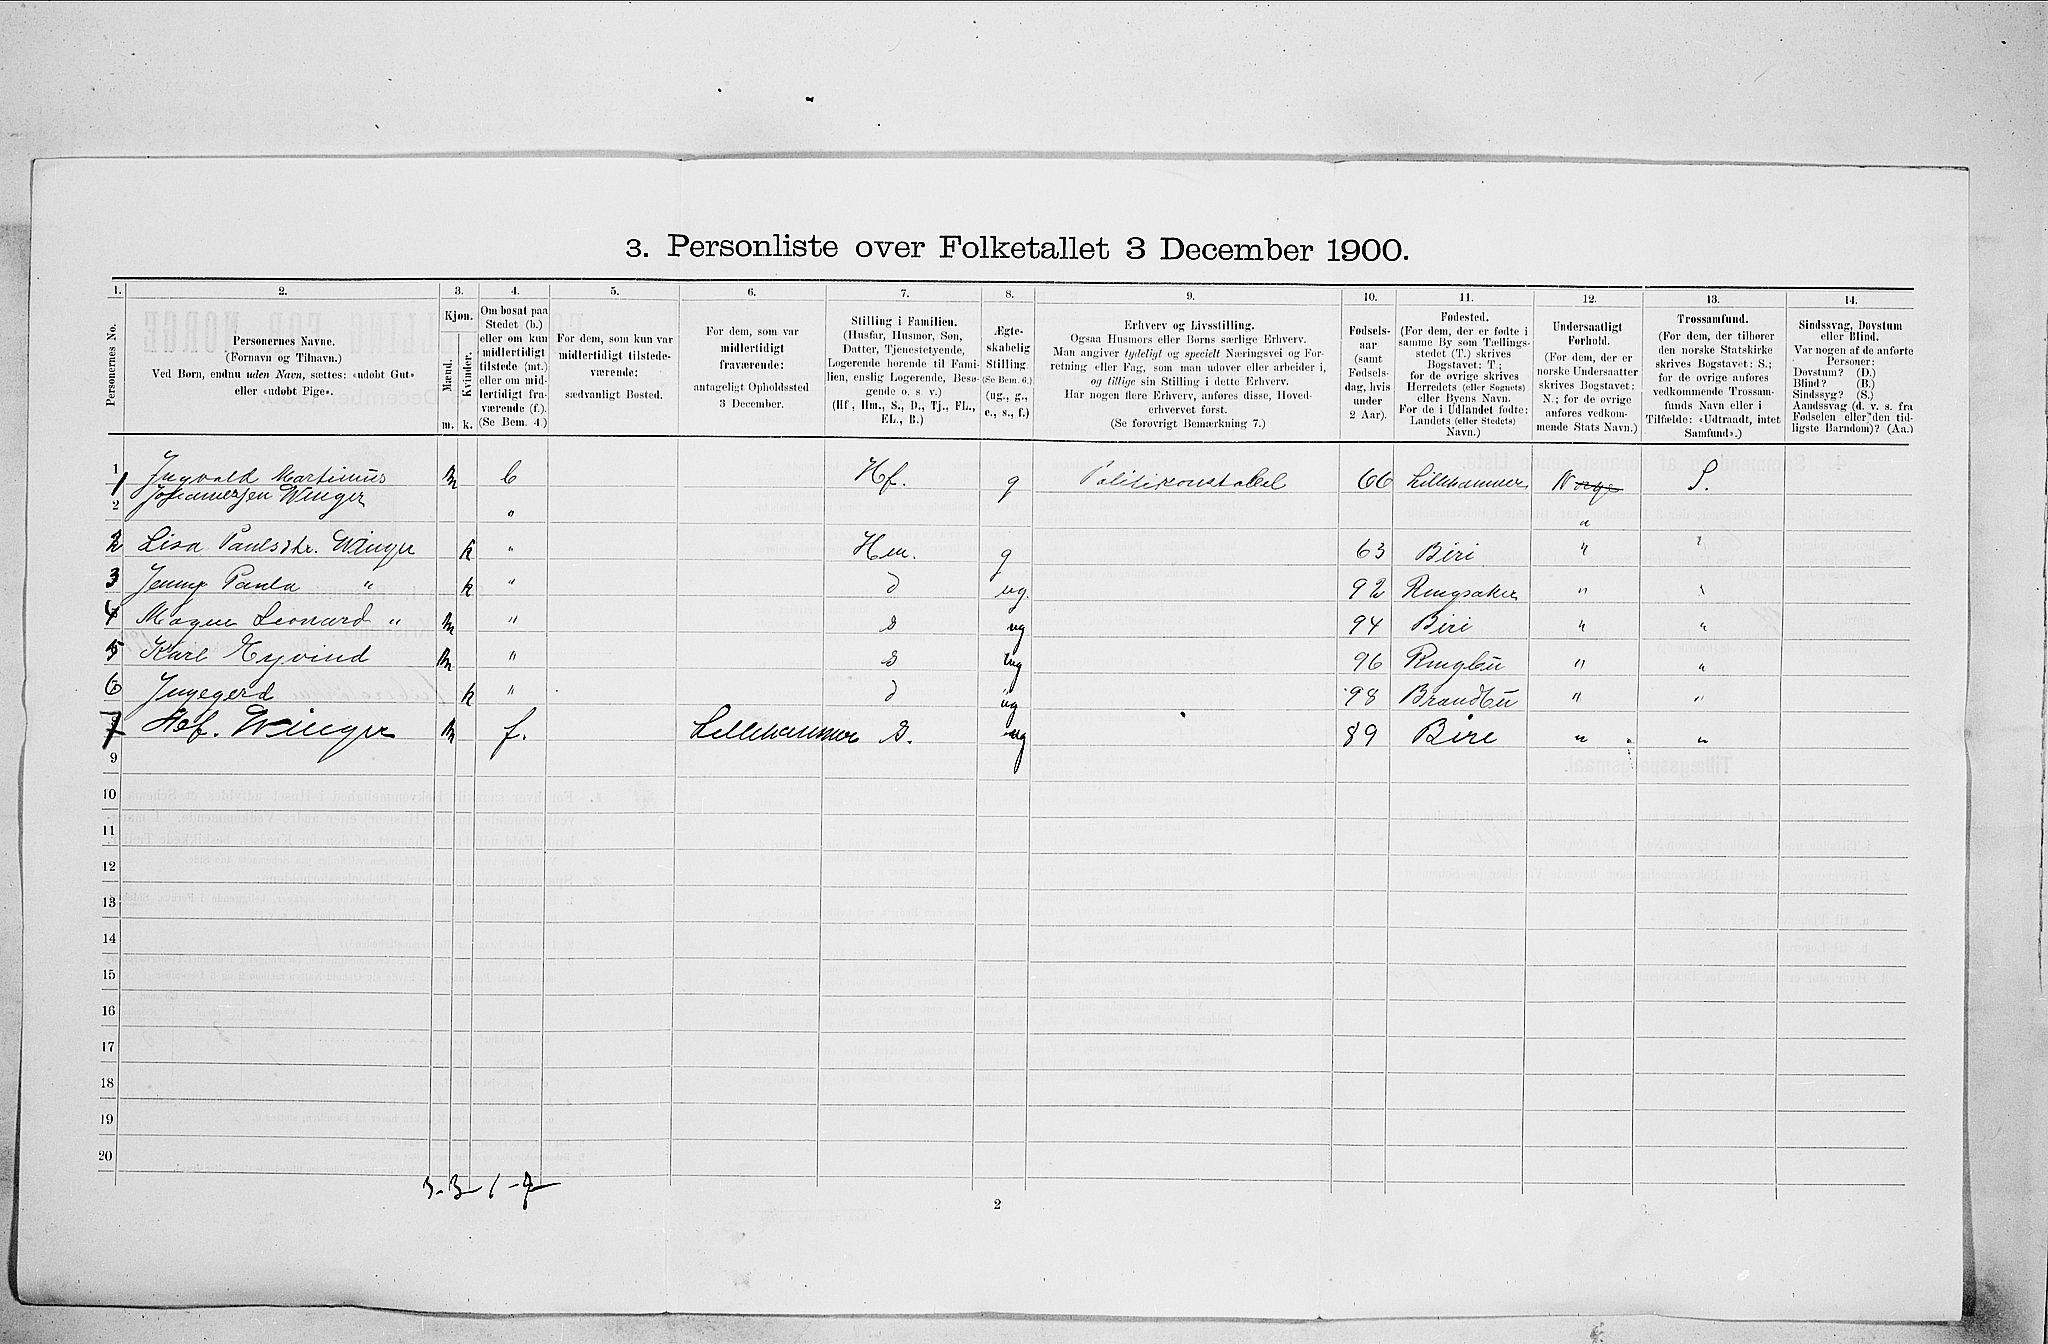 3. Personliste over Folketallet 3 December 1900.
1. 2. 3. 4. 5. 6. 7. 8. 9. 10. 11. 12. 13. 14.
Personernes No.
Personernes Navne.
(Fornavn og Tilnavn.)
Ved Børn, endnu uden Navn, sættes: «udøbt Gut»
eller «udøbt Pige».
Kjøn.
Mænd. Kvinder.
m. k.
Om bosat paa
Stedet (b.)
eller om kun
midlertidigt
tilstede (mt.)
eller om mid-
lertidigt fra-
værende (f.)
(Se Bem. 4.)
For dem, som kun var
midlertidigt tilstede-
værende:
sædvanligt Bosted.
For dem, som var
midlertidigt
fraværende:
antageligt Opholdssted
3 December.
Stilling i Familien.
(Husfar, Husmor, Søn,
Datter, Tjenestetyende,
Logerende hørende til Fami-
lien, enslig Logerende, Besø-
gende o. s. v.)
(Hf., Hm., S., D., Tj., FL.,
EL., B.)
Ægte-
skabelig
Stilling
(Se Bem. 6.)
(ug., g.,
e., s., f.)
Erhverv og Livsstilling.
Ogsaa Husmors eller Børns særlige Erhverv.
Man angiver tydeligt og specielt Næringsvei og For-
retning eller Fag, som man udøver eller arbeider i,
og tillige sin Stilling i dette Erhverv.
Har nogen flere Erhverv, anføres disse, Hoved-
erhvervet først.
(Se forøvrigt Bemærkning 7.)
Fødsels-
aar
(samt
Fødsels-
dag, hvis
under
2 Aar).
Fødested.
(For dem, der er fødte i
samme By som Tællings-
stedet (T.) skrives
Bogstavet: T;
for de øvrige skrives
Herredets (eller Sognets)
eller Byens Navn.
For de i Udlandet fødte:
Landets (eller Stedets)
Navn.)
Undersaatligt
Forhold.
(For dem, der er
norske Undersaatter
skrives Bogstavet:
N.; for de øvrige
anføres vedkom-
mende Stats Navn.)
Trossamfund.
(For dem, der tilhører
den norske Statskirke
skrives Bogstavet: S.;
for de øvrige anføres
vedkommende Trossam-
funds Navn eller i
Tilfælde: «Udtraadt, intet
Samfund».)
Sindssvag, Døvstum
eller Blind.
Var nogen af de anførte
Personer:
Døvstum? (D.)
Blind? (B.)
Sindssyg? (S.)
Aandssvag (d. v. s. fra
Fødselen eller den tid-
ligste Barndom)? (Aa.)
1 Ingvald Martinius m b Hf. g Politikonstabel 66 Lillehammer Norge S.
2 Johannessen Winger " "
2 Lisa Paulsdtr. Winger k " Hm. g 63 Biri " "
3 Jenny Paula " k " d ug. 92 Ringsaker " "
4 Magne Leonard " m " s ug 94 Biri " "
5 Karl Eyvind m " s ug 96 Ringbu " "
6 Ingegerd k " d ug 98 Brandbu " "
7 Alf. Winger m f. Lillehammer s. ug 89 Biri " "
9
10
11
12
13
14
15
16
17
18
19
20
2